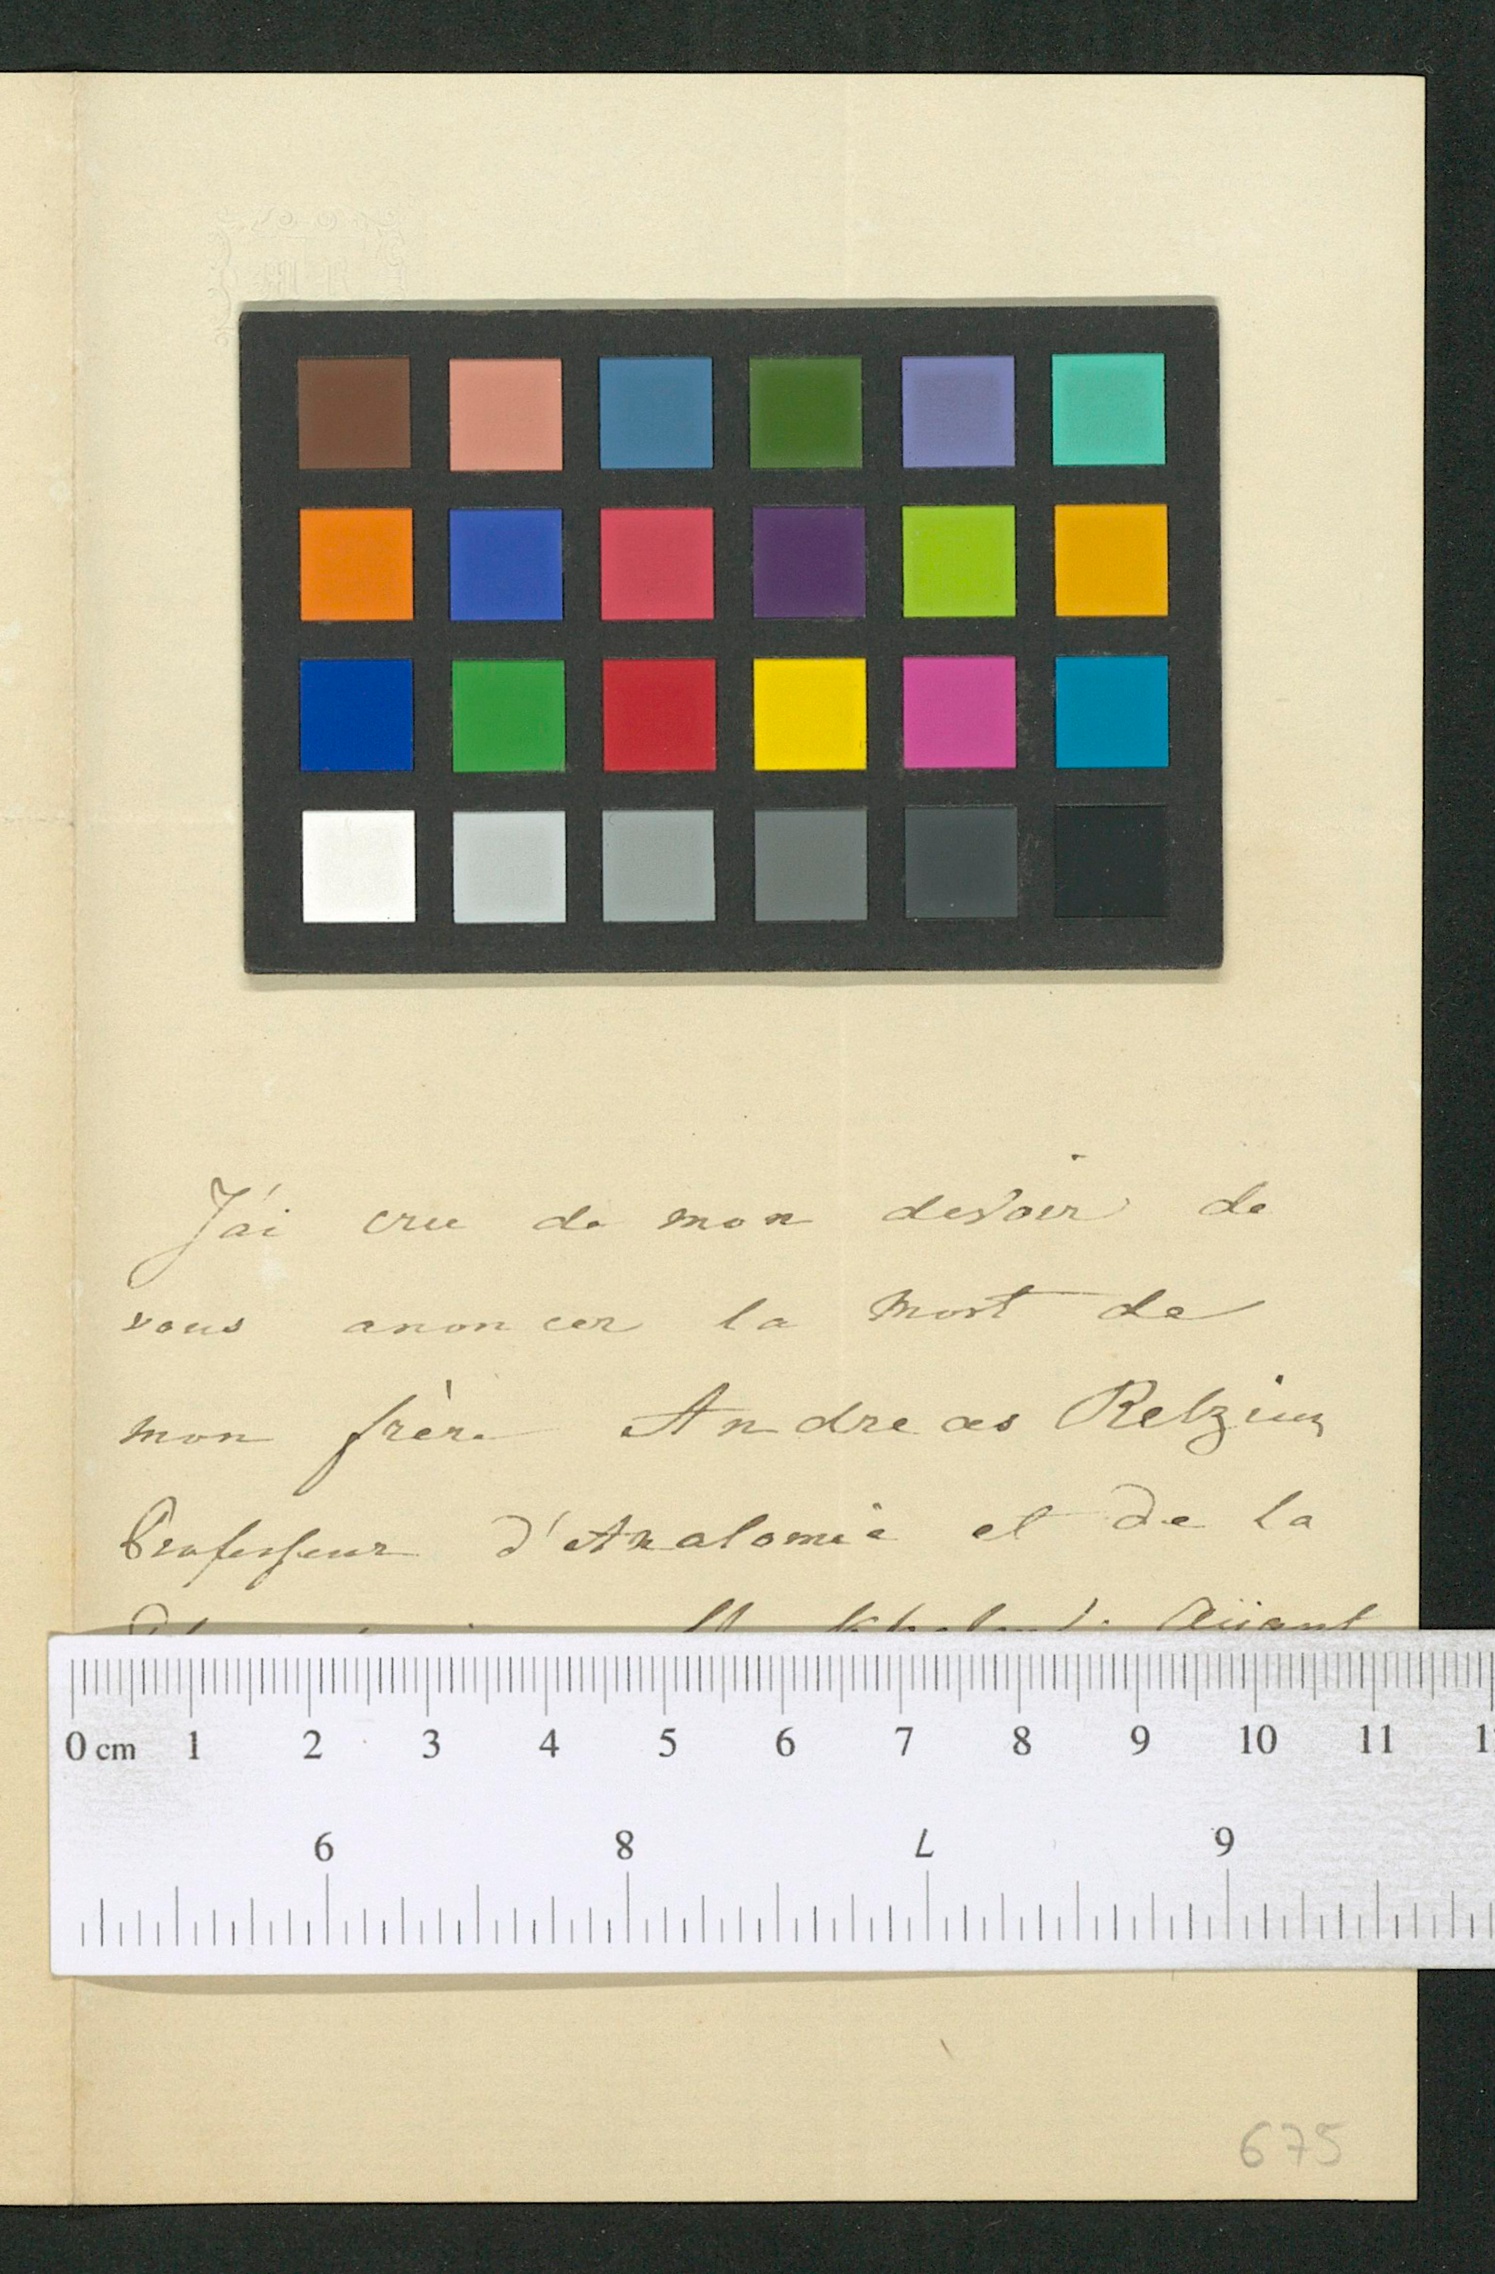 J'ai cru de mon devoir de
vous anoncer la mort de
mon frère Andreas Retzius
Professeur d'Anatomie et de la
Aüant
0 cm 1 2 3 4 5 6 7 8 9 10 11
6 8 7 9
675